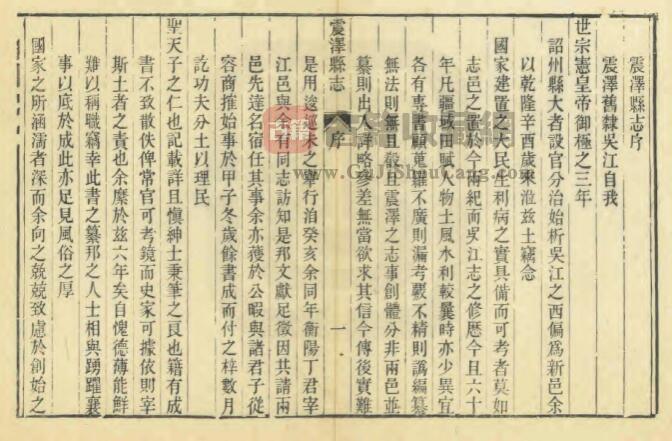 震澤縣志序
震澤舊隸吳江自我
世宗憲皇帝御極之三年
詔州縣大者設官分治始析吳江之西偏爲新邑余
以乾隆辛酉歲來涖茲土竊念
國家建置之大民生利病之實具備而可考者莫如
志邑之置於今兩紀而吳江志之修歷今且六十
年凡疆域田賦人物土風水利較曩時亦少異宜
各有專書顧蒐羅不廣則漏考覈不精則譌編纂
無法則無且震澤之志事創體分非兩邑並
纂則出入詳略參差無當欲求其信今傳後實難
震澤縣志
序
一
是用逡巡未之舉行洎癸亥余同年衡陽丁君宰
江邑與余有同志訪知是邦文獻足徵因其請兩
邑先達名宿任其事余亦獲於公暇與諸君子從
容商搉始事於甲子冬歲餘書成而付之梓數月
訖功夫分土以理民
聖天子之仁也記載詳且愼紳士秉筆之良也籍有成
書不致散佚俾常官可考鏡而史家可據依則宰
斯土者之責也余縻於茲六年矣自愧德薄能鮮
難以稱職竊幸此書之纂邦之人士相與踴躍襄
事以底於成此亦足見風俗之厚
國家之所涵濡者深而余向之兢兢致慮於創始之
古籍收藏網
www.GuJiShouCang.com